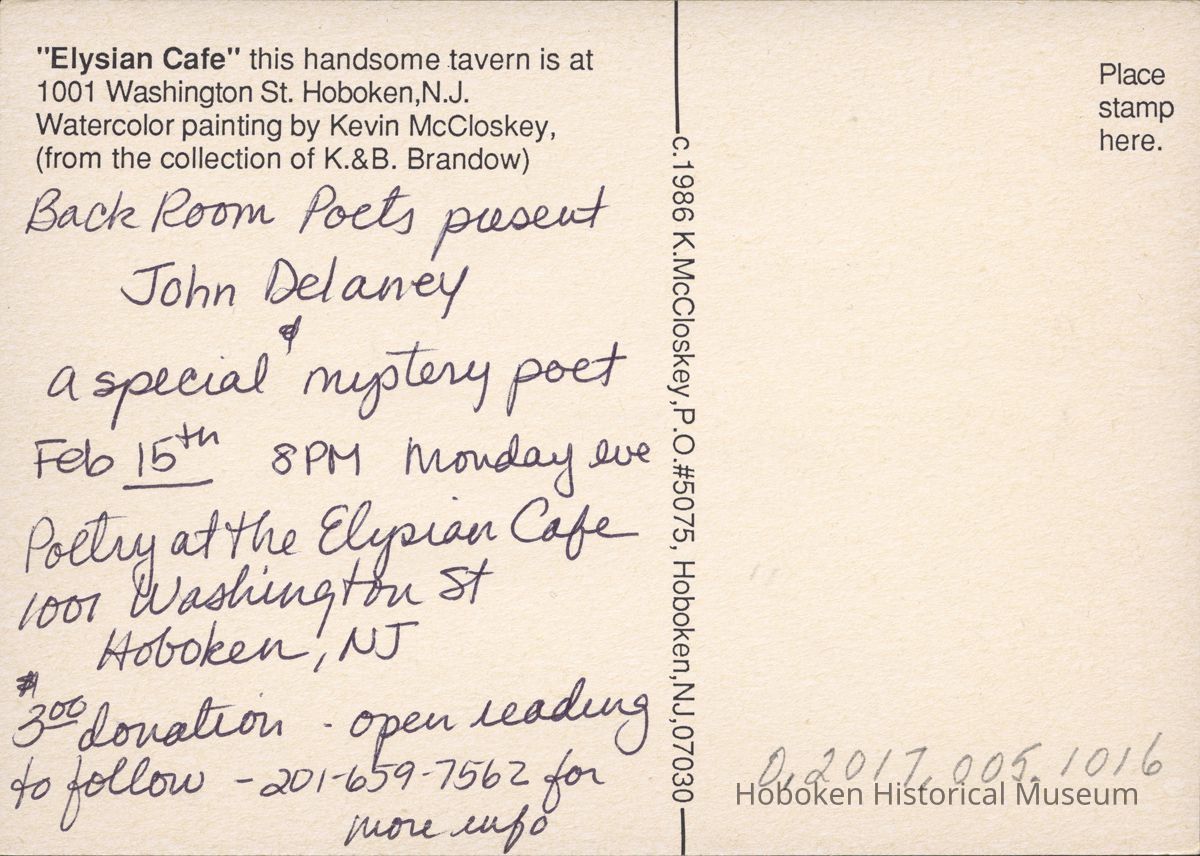 "Elysian Cafe" this handsome tavern is at
1001 Washington St. Hoboken,N.J.
Watercolor painting by Kevin McCloskey,
(from the collection of K.&B. Brandow)
Back Room Poets present
John Delaney
&
a special mystery poet
Feb 15th 8PM Monday eve
Poetry at the Elysian Cafe
1001 Washington St
Hoboken, NJ
$3.00 donation - open reading
to follow - 201-659-7562 for
more info
c.1986 K.McCloskey,P.O.#5075, Hoboken,NJ,07030
Place
stamp
here.
0.2017.005.1016
Hoboken Historical Museum